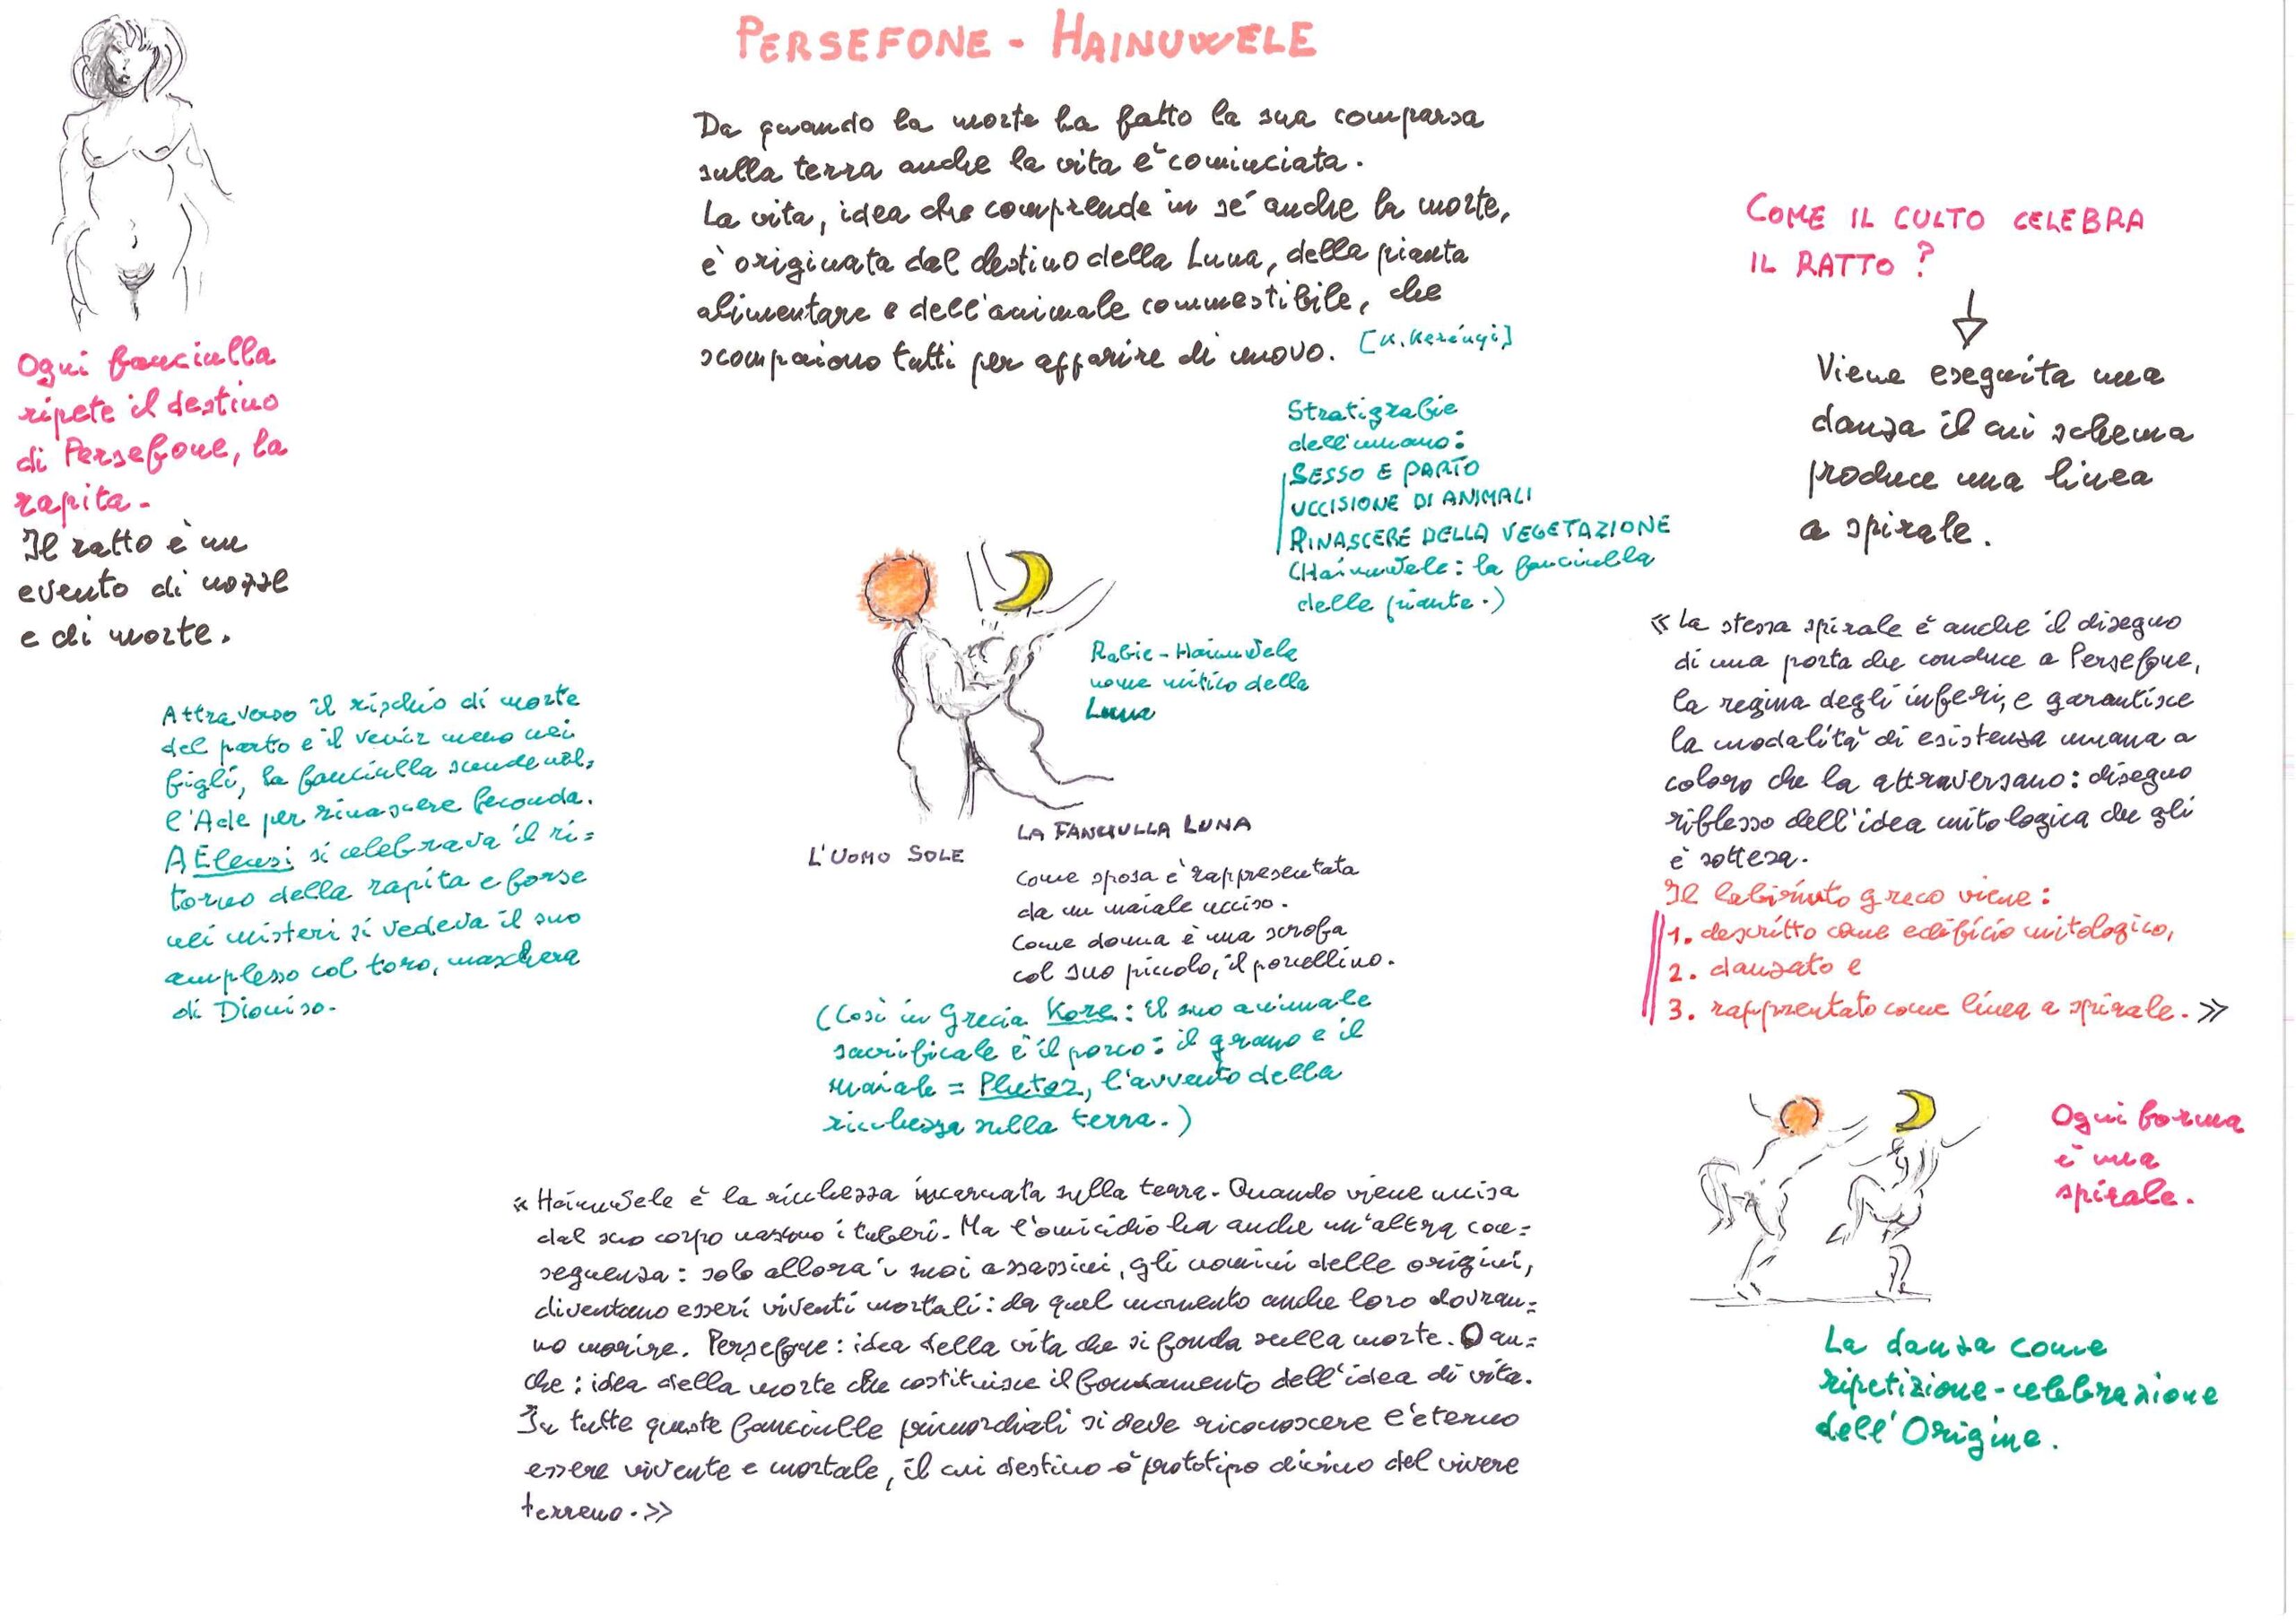 PERSEFONE - HAINUWELE
Da quando la morte ha fatto la sua comparsa
sulla terra anche la vita è cominciata.
La vita, idea che comprende in sé anche la morte,
è originata dal destino della Luna, della pianta
alimentare e dell'animale commestibile, che
scompaiono tutti per apparire di nuovo. [K. Kerényi]
Ogni fanciulla
ripete il destino
di Persefone, la
rapita.
Il ratto è un
evento di nozze
e di morte.
Attraverso il rischio di morte
del parto e il venir meno nei
figli, la fanciulla scende nel=
l'Ade per rinascere feconda.
A Eleusi si celebrava il ri=
torno della rapita e forse
nei misteri si vedeva il suo
amplesso col toro, maschera
di Dioniso.
Stratigrafie
dell'umano:
SESSO E PARTO
UCCISIONE DI ANIMALI
RINASCERE DELLA VEGETAZIONE
(Hainuwele: la fanciulla
delle piante.)
Rabie-Hainuwele
nome mitico della
Luna
L'UOMO SOLE
LA FANCIULLA LUNA
Come sposa è rappresentata
da un maiale ucciso.
Come donna è una scrofa
col suo piccolo, il porcellino.
(Così in Grecia Kore: il suo animale
sacrificale è il porco: il grano e il
maiale = Plutos, l'avvento della
ricchezza sulla terra.)
«Hainuwele è la ricchezza incarnata sulla terra. Quando viene uccisa
dal suo corpo nascono i tuberi. Ma l'omicidio ha anche un'altra con=
seguenza: solo allora i suoi assassini, gli uomini delle origini,
diventano esseri viventi mortali: da quel momento anche loro dovran=
no morire. Persefone: idea della vita che si fonda sulla morte. O an=
che: idea della morte che costituisce il fondamento dell'idea di vita.
In tutte queste fanciulle primordiali si deve riconoscere l'eterno
essere vivente e mortale, il cui destino è prototipo divino del vivere
terreno.»
COME IL CULTO CELEBRA
IL RATTO?
Viene eseguita una
danza il cui schema
produce una linea
a spirale.
«La stessa spirale è anche il disegno
di una porta che conduce a Persefone,
la regina degli inferi, e garantisce
la modalità di esistenza umana a
coloro che la attraversano: disegno
riflesso dell'idea mitologica che gli
è sottesa.
Il labirinto greco viene:
1. descritto come edificio mitologico,
2. danzato e
3. rappresentato come linea a spirale.»
Ogni forma
è una
spirale.
La danza come
ripetizione-celebrazione
dell'Origine.